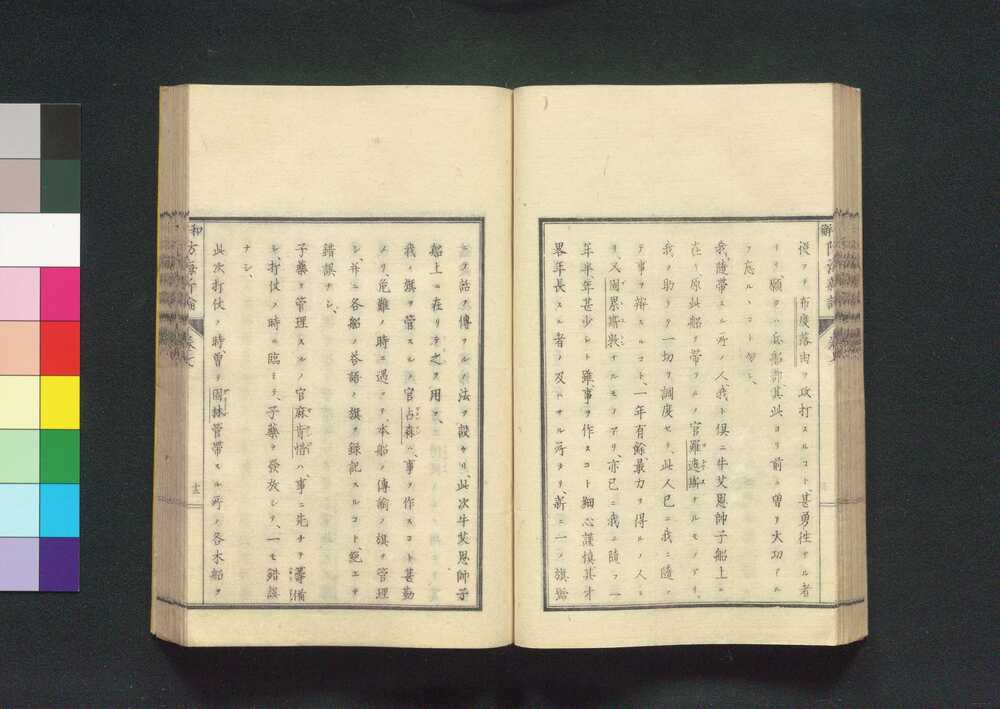 従ヲヲ布度落由ヲ攻打スルコト、甚勇往ナル者
ナリ、願クハ兵船部、其此ヨリ前ニ曽リ大功アル
ヲ忘ルヽコト勿レ、
我、随帯スル所ノ人、我ト倶ニ牛芰恩帥子船上ニ
在リ、原此船ヲ帯フルノ官羅遮斯ナルモノアリ、
我ヲ助ケテ一切ヲ調度セリ、此人已ニ我ニ随テ
テ事ヲ辨スルコト、一年有餘最力ヲ得ルノ人ナ
リ、又
年半、年甚少シト雖、事ヲ作スコト細心謹慎其才
畧年長スル者ノ及ハサル所ナリ、新ニ一ノ旗號
ニテ話ヲ傳フルノ法ヲ設ケリ、此次牛芰恩帥子
船上ニ在リテ之ヲ用フ、
我カ旗ヲ管スルノ官占森ハ、事ヲ作スコト甚勤
メリ、危難ノ時ニ遇フテ、本船ノ傳諭ノ旗ヲ管理
シ、并ニ各船ノ答語ノ旗ヲ録記スルコト、絶エテ
錯誤ナシ、
子藥ヲ管理スルノ官麻肯惜ハ、事ニ先チテ籌備
シ、打仗ノ時ニ臨ミテ、子藥ヲ發放シテ、一モ錯誤
ナシ、
此次打仗ノ時、曽テ固林管帯スル所ノ各木船ヲ